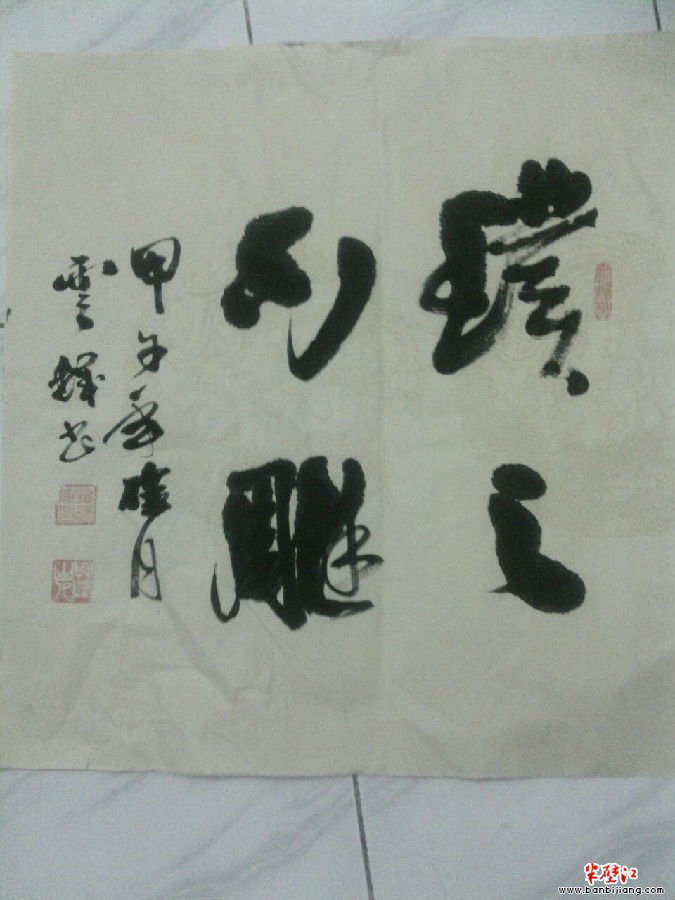 璞之
不雕
甲午年桂月
雲書
半壁江
www.banbijiang.com